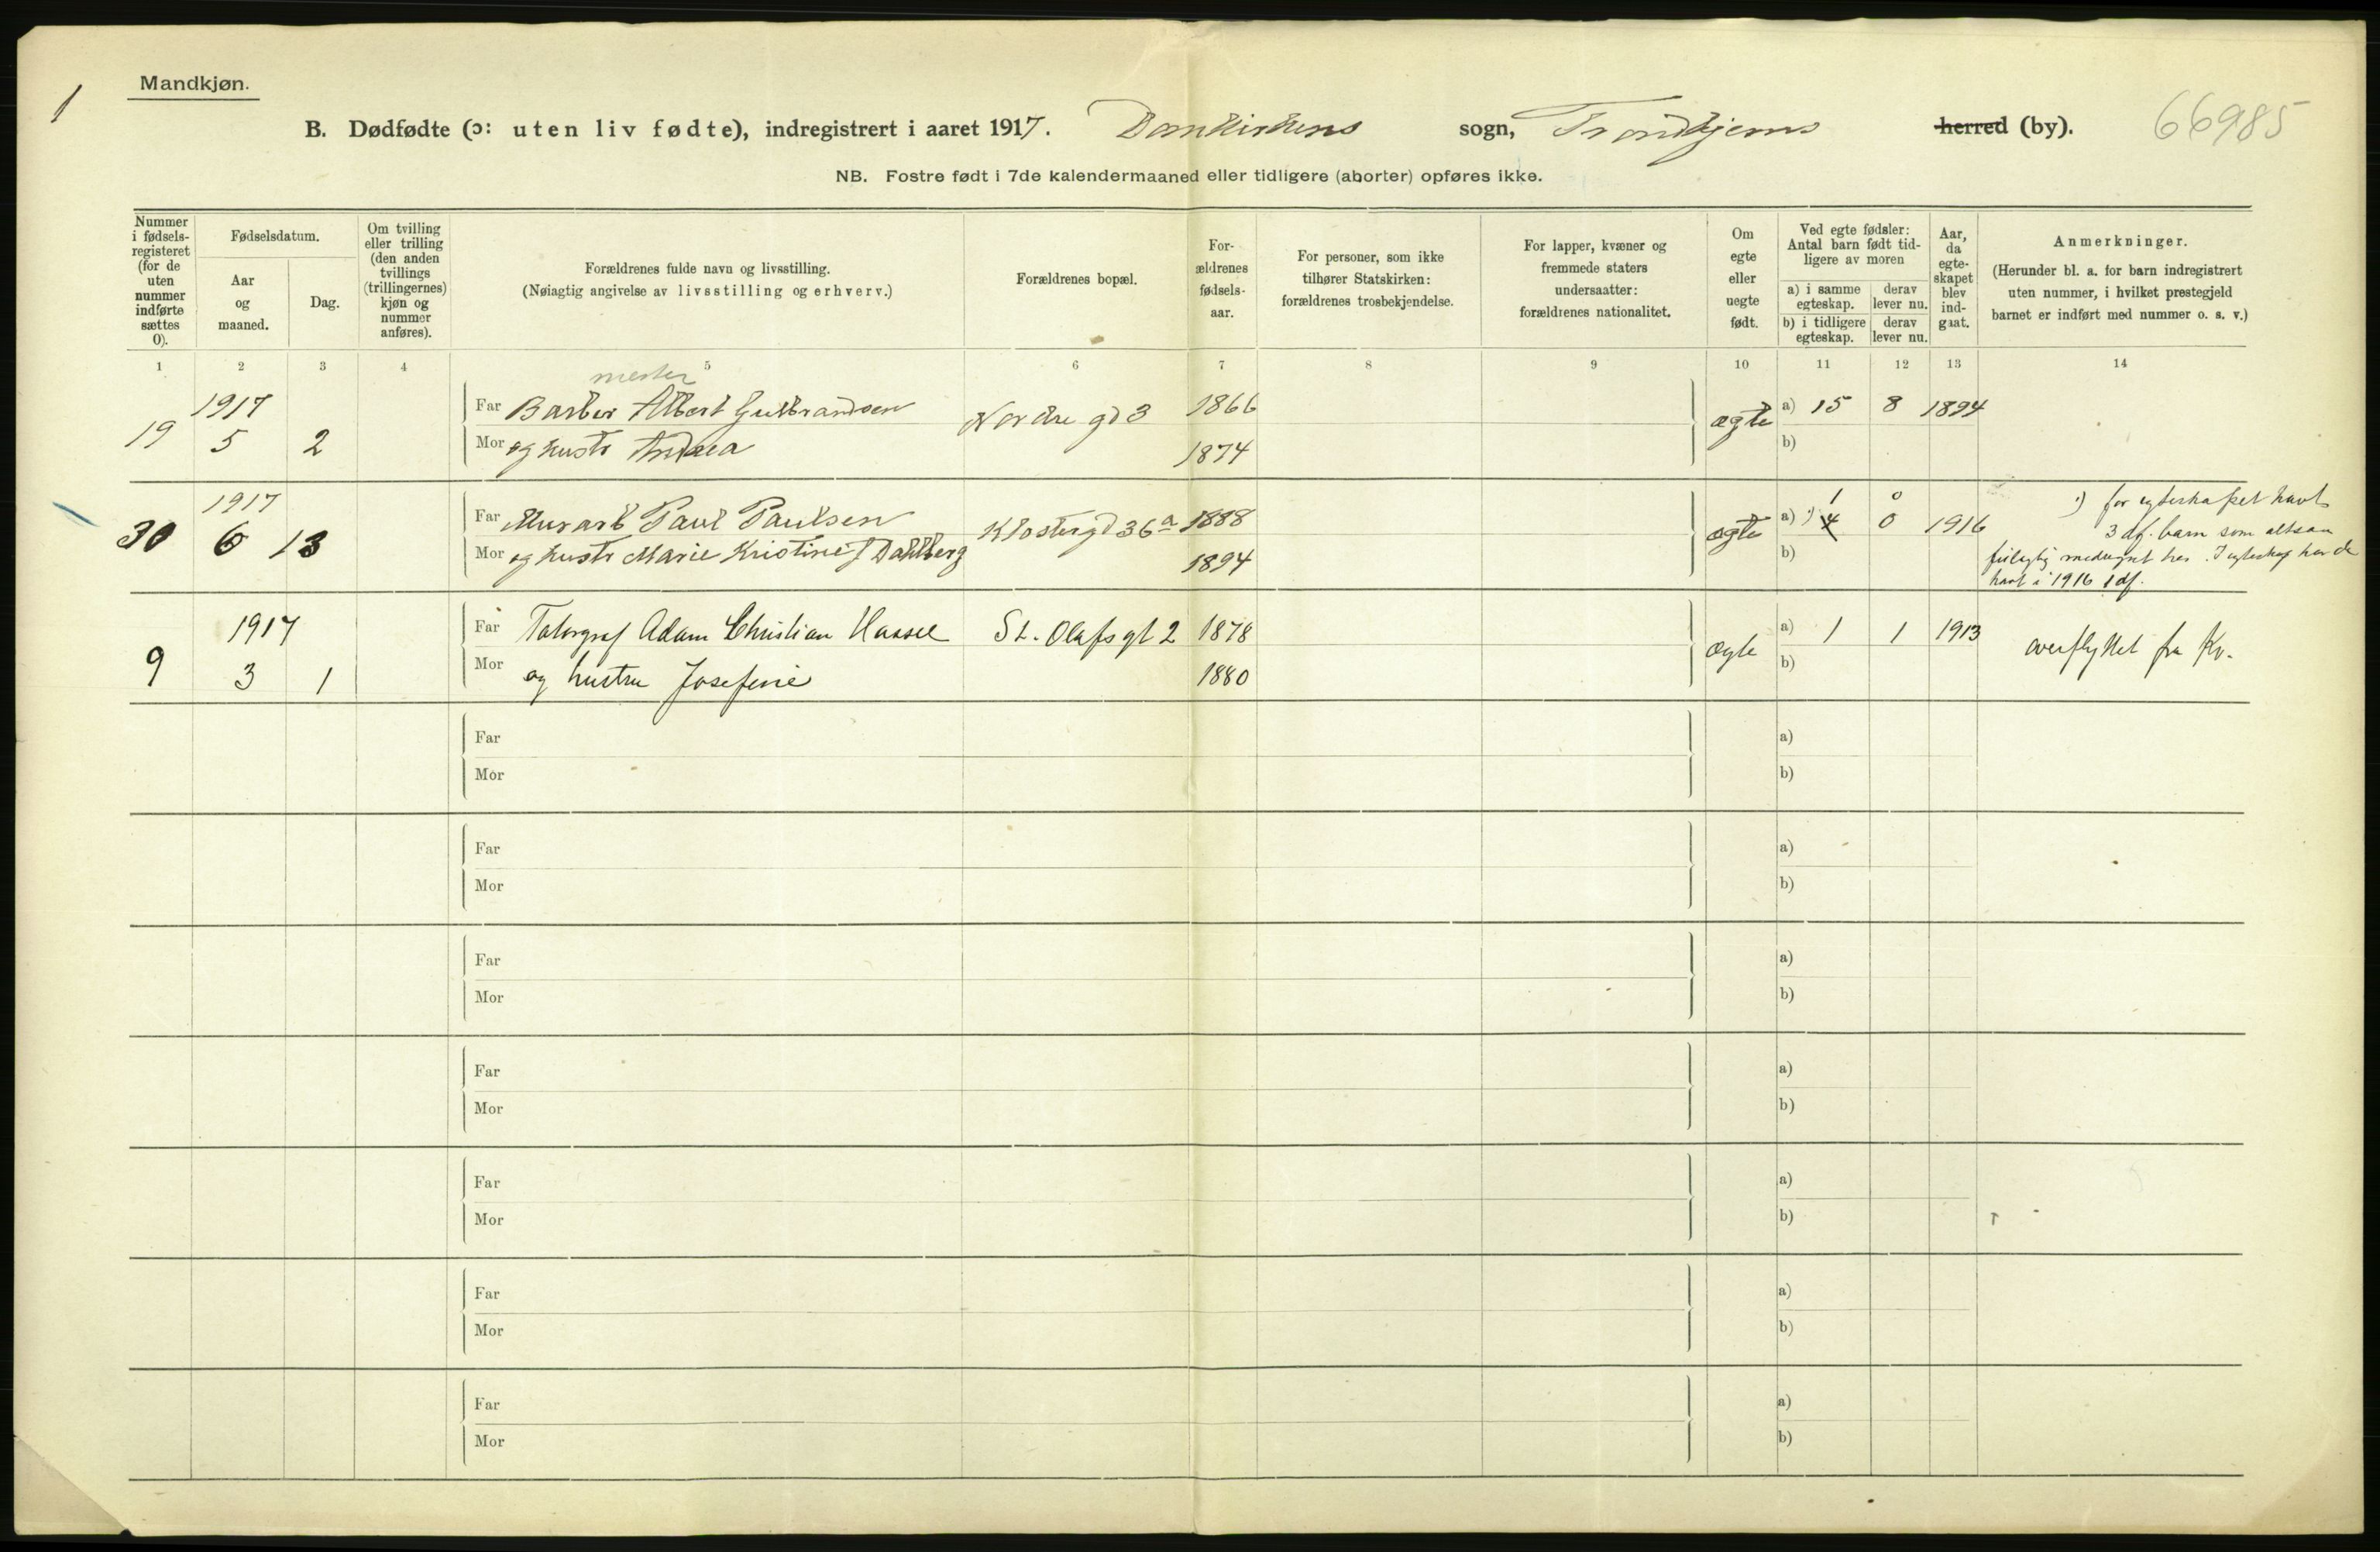 1
Mandkjøn.
B. Dødfødte (ɔ: uten liv fødte), indregistrert i aaret 1917. Domkirkens sogn, Trondhjems herred (by). 66985
NB. Fostre født i 7de kalendermaaned eller tidligere (aborter) opføres ikke.
Nummer
i fødsels-
registeret
(for de
uten
nummer
indførte
sættes
0).
Fødselsdatum.
Aar
og
maaned.
Dag.
Om tvilling
eller trilling
(den anden
tvillings
(trillingernes)
kjøn og
nummer
anføres).
Forældrenes fulde navn og livsstilling.
(Nøiagtig angivelse av livsstilling og erhverv.)
Forældrenes bopæl.
For-
ældrenes
fødsels-
aar.
For personer, som ikke
tilhører Statskirken:
forældrenes trosbekjendelse.
For lapper, kvæner og
fremmede staters
undersaatter:
forældrenes nationalitet.
Om
egte
eller
uegte
født.
Ved egte fødsler:
Antal barn født tid-
ligere av moren
a) i samme
egteskap.
derav
lever nu.
b) i tidligere
egteskap.
derav
lever nu.
Aar,
da
egte-
skapet
blev
ind-
gaat.
Anmerkninger.
(Herunder bl. a. for barn indregistrert
uten nummer, i hvilket prestegjeld
barnet er indført med nummer o. s. v.)
1 2 3 4 5 6 7 8 9 10 11 12 13 14
mester
1917 Far Barber Albert Gulbrandsen Nordre gd 3 1866 ægte a) 15 8 1894
19 5 2 Mor og hustr Andrea 1874 b)
1917 Far Murarb Paul Paulsen Klostergd 36a 1888 ægte a) 1) 4 0 1916
1 0
30 6 13 Mor og hustr Marie Kristine f Dahlberg 1894 b)
1) før egteskapet havt
3 df. barn som altsaa
feilagtig medregnet her. I egteskap har de
havt i 1916 1 df.
1917 Far Adam Christian St. Olafs gt 2 1878 ægte a) 1 1 1913 overflyttet fra Kv.
9 3 1 Mor og hustru Josefine 1880 b)
Far a)
Mor b)
Far a)
Mor b)
Far a)
Mor b)
Far a)
Mor b)
Far a)
Mor b)
Far a)
Mor b)
Far a)
Mor b)